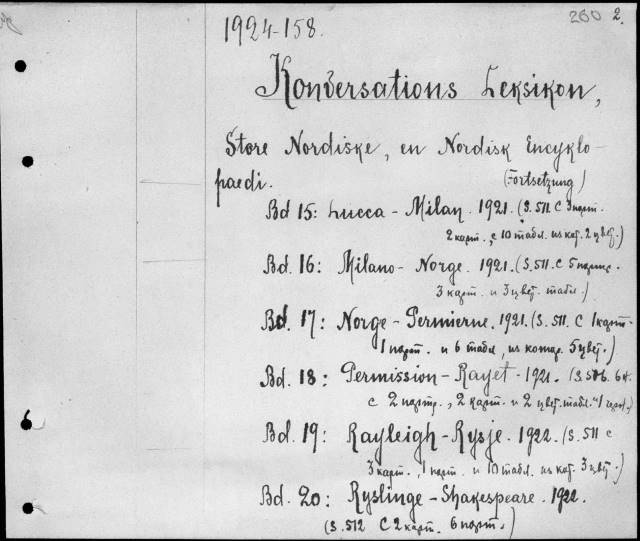 260 2.
1924-158.
Konversations Leksikon,
Store Nordiske, en Nordisk Encyklo-
paedi. (Fortsetzung)
Bd 15: Lucca - Milan. 1921. (S. 511. с 3 порт.
2 карт., с 10 табл. из кот. 2 цвет.)
Bd. 16: Milano - Norge. 1921. (S. 511. с 5 портр.
3 карт. и 3 цвет. табл.)
Bd. 17: Norge - Permierne. 1921. (S. 511. с 1 карт.
1 порт. и 6 табл., из котор. 5 цвет.)
Bd. 18: Permission - Rayet. 1921. (S.
с 2 портр., 2 карт. и 2 цвет. табл.
Bd. 19: Rayleigh - Rysje. 1922. (S. 511 с
3 карт., 1 порт. и 10 табл. из кот. 3 цвет.)
Bd. 20: Ryslinge - Shakespeare. 1922.
(S. 512 с 2 карт. 6 порт.)